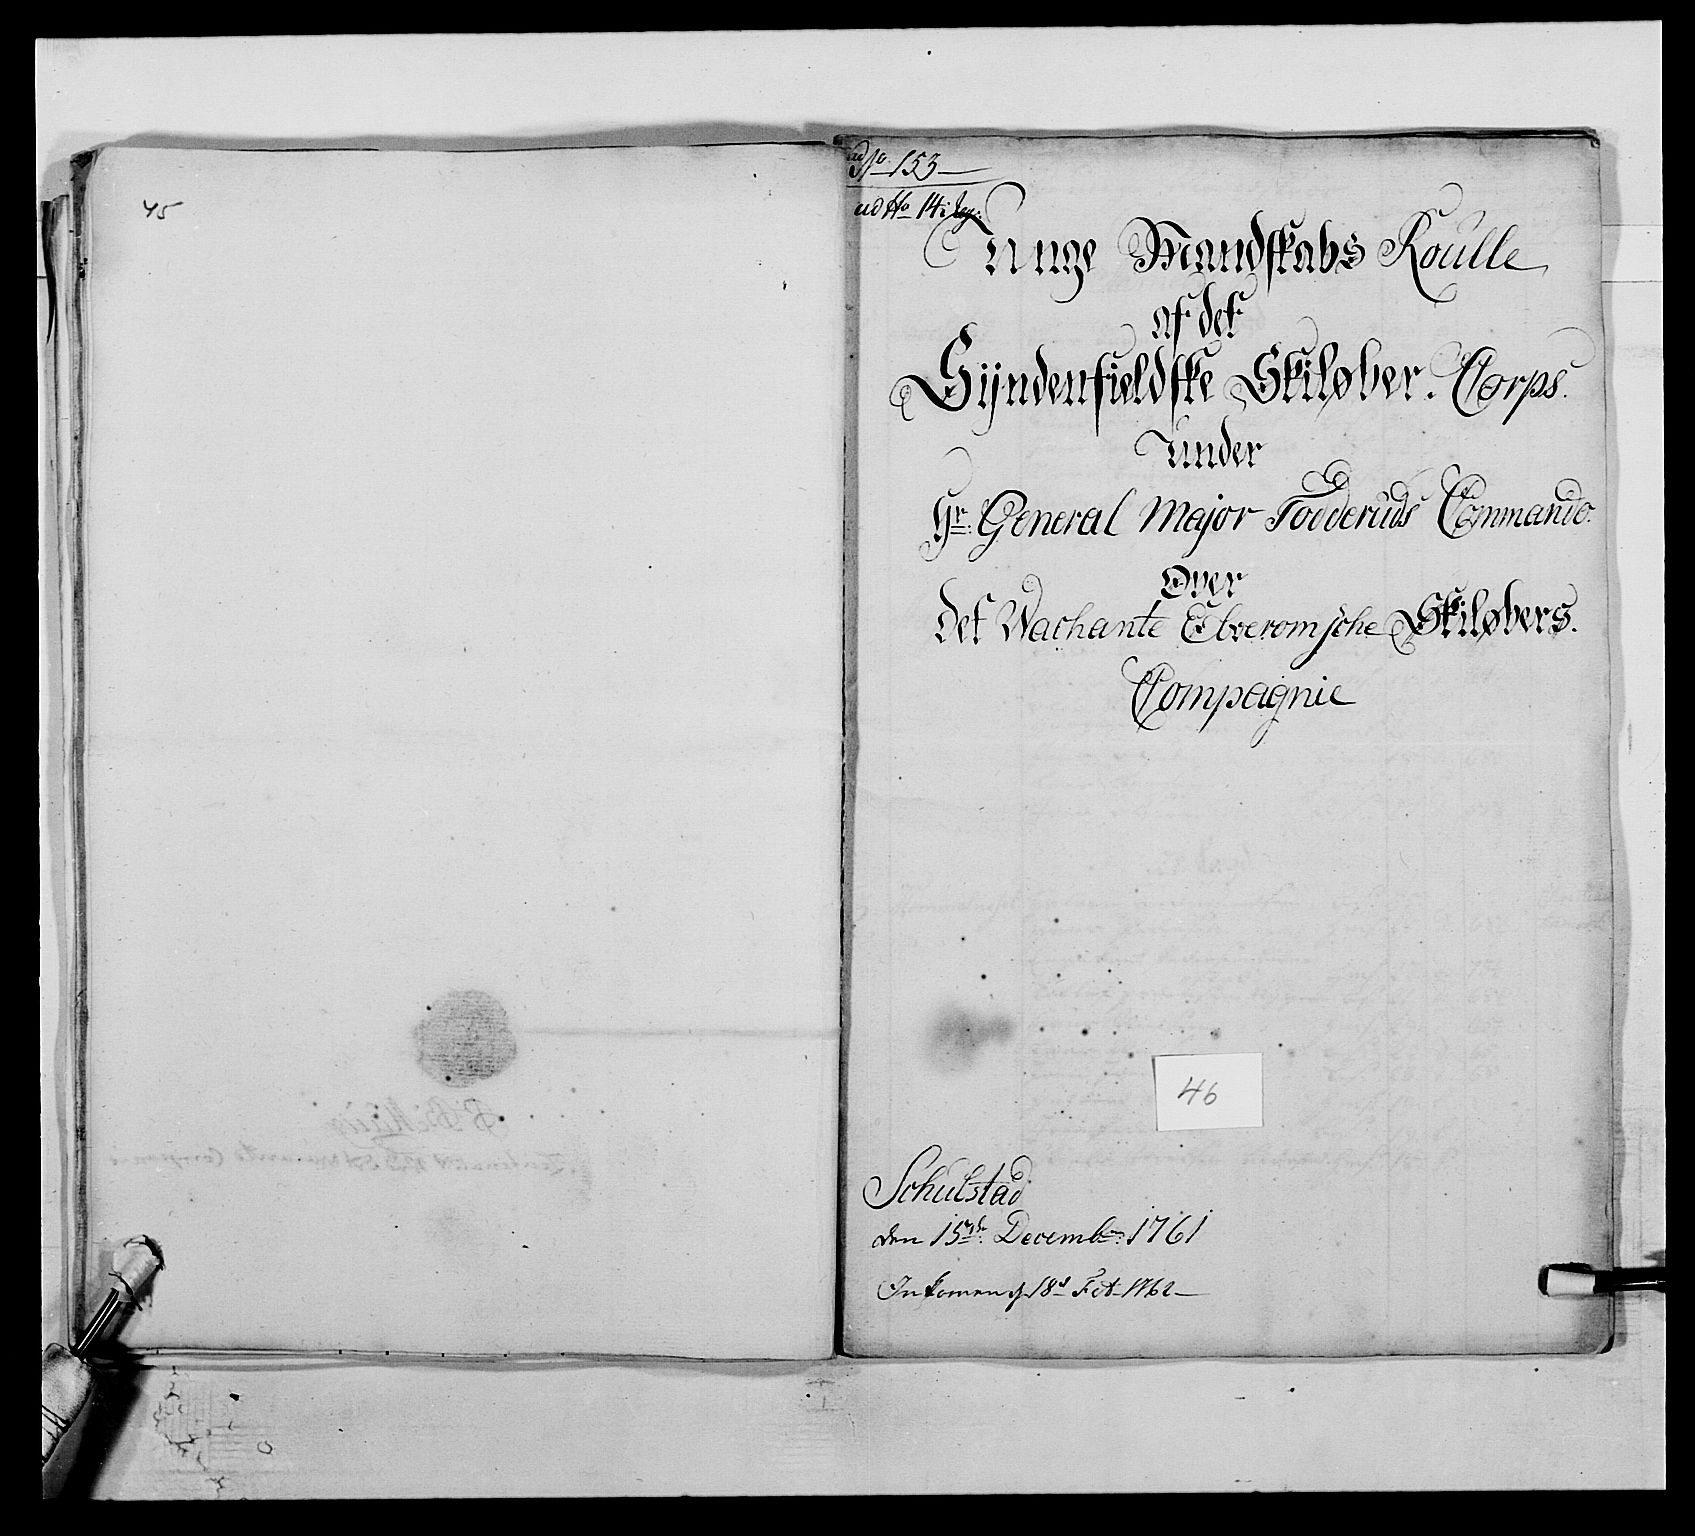 45
ad No 153
ad No 14
Unge Mandskabs Roulle
af det
Syndenfieldske Skiløber. Corps.
Under
Hr: General Major Todderuds Commando.
Over
det Vachante Elveromsche Skiløbers.
Compagnie
46
Schulstad
den 15de: Decembr: 1761
Inkomen d 18d Feb 1762